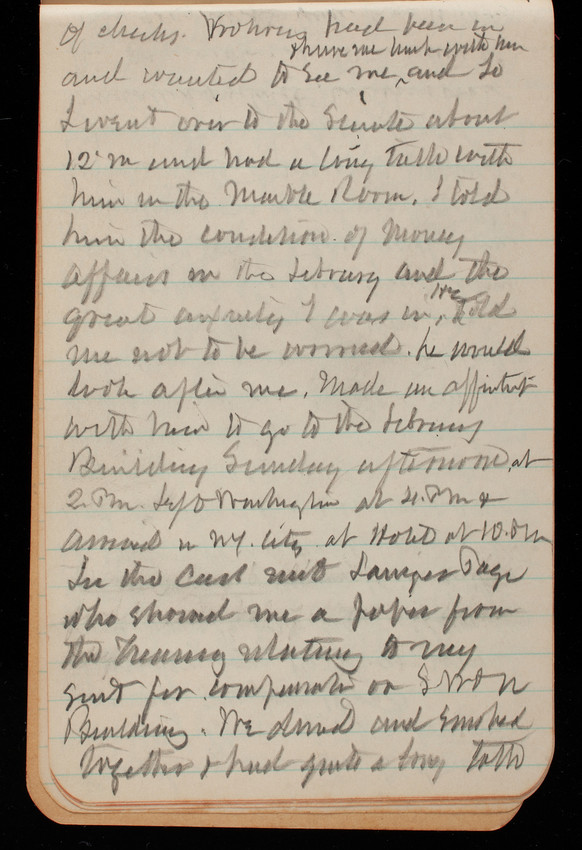 of checks. had been in
and wanted to see me, and so
I went over to the Senate about
12 m and had a long talk with
him in the Marble Room. I told
him the condition of Money
affairs in the Library and the
great anxiety I was in, He told
me not to be worried. he would
look after me. Made an
with him to go to the Library
Building Sunday afternoon, at
2. P.m. Left Washington at 4. P.M &
arrived in N.Y. City at Hotel at 10. P.M
In the Cars met Page
who showed me a paper from
the Treasury relating to my
suit for on
Building. We dined and smoked
together & had quite a long talk